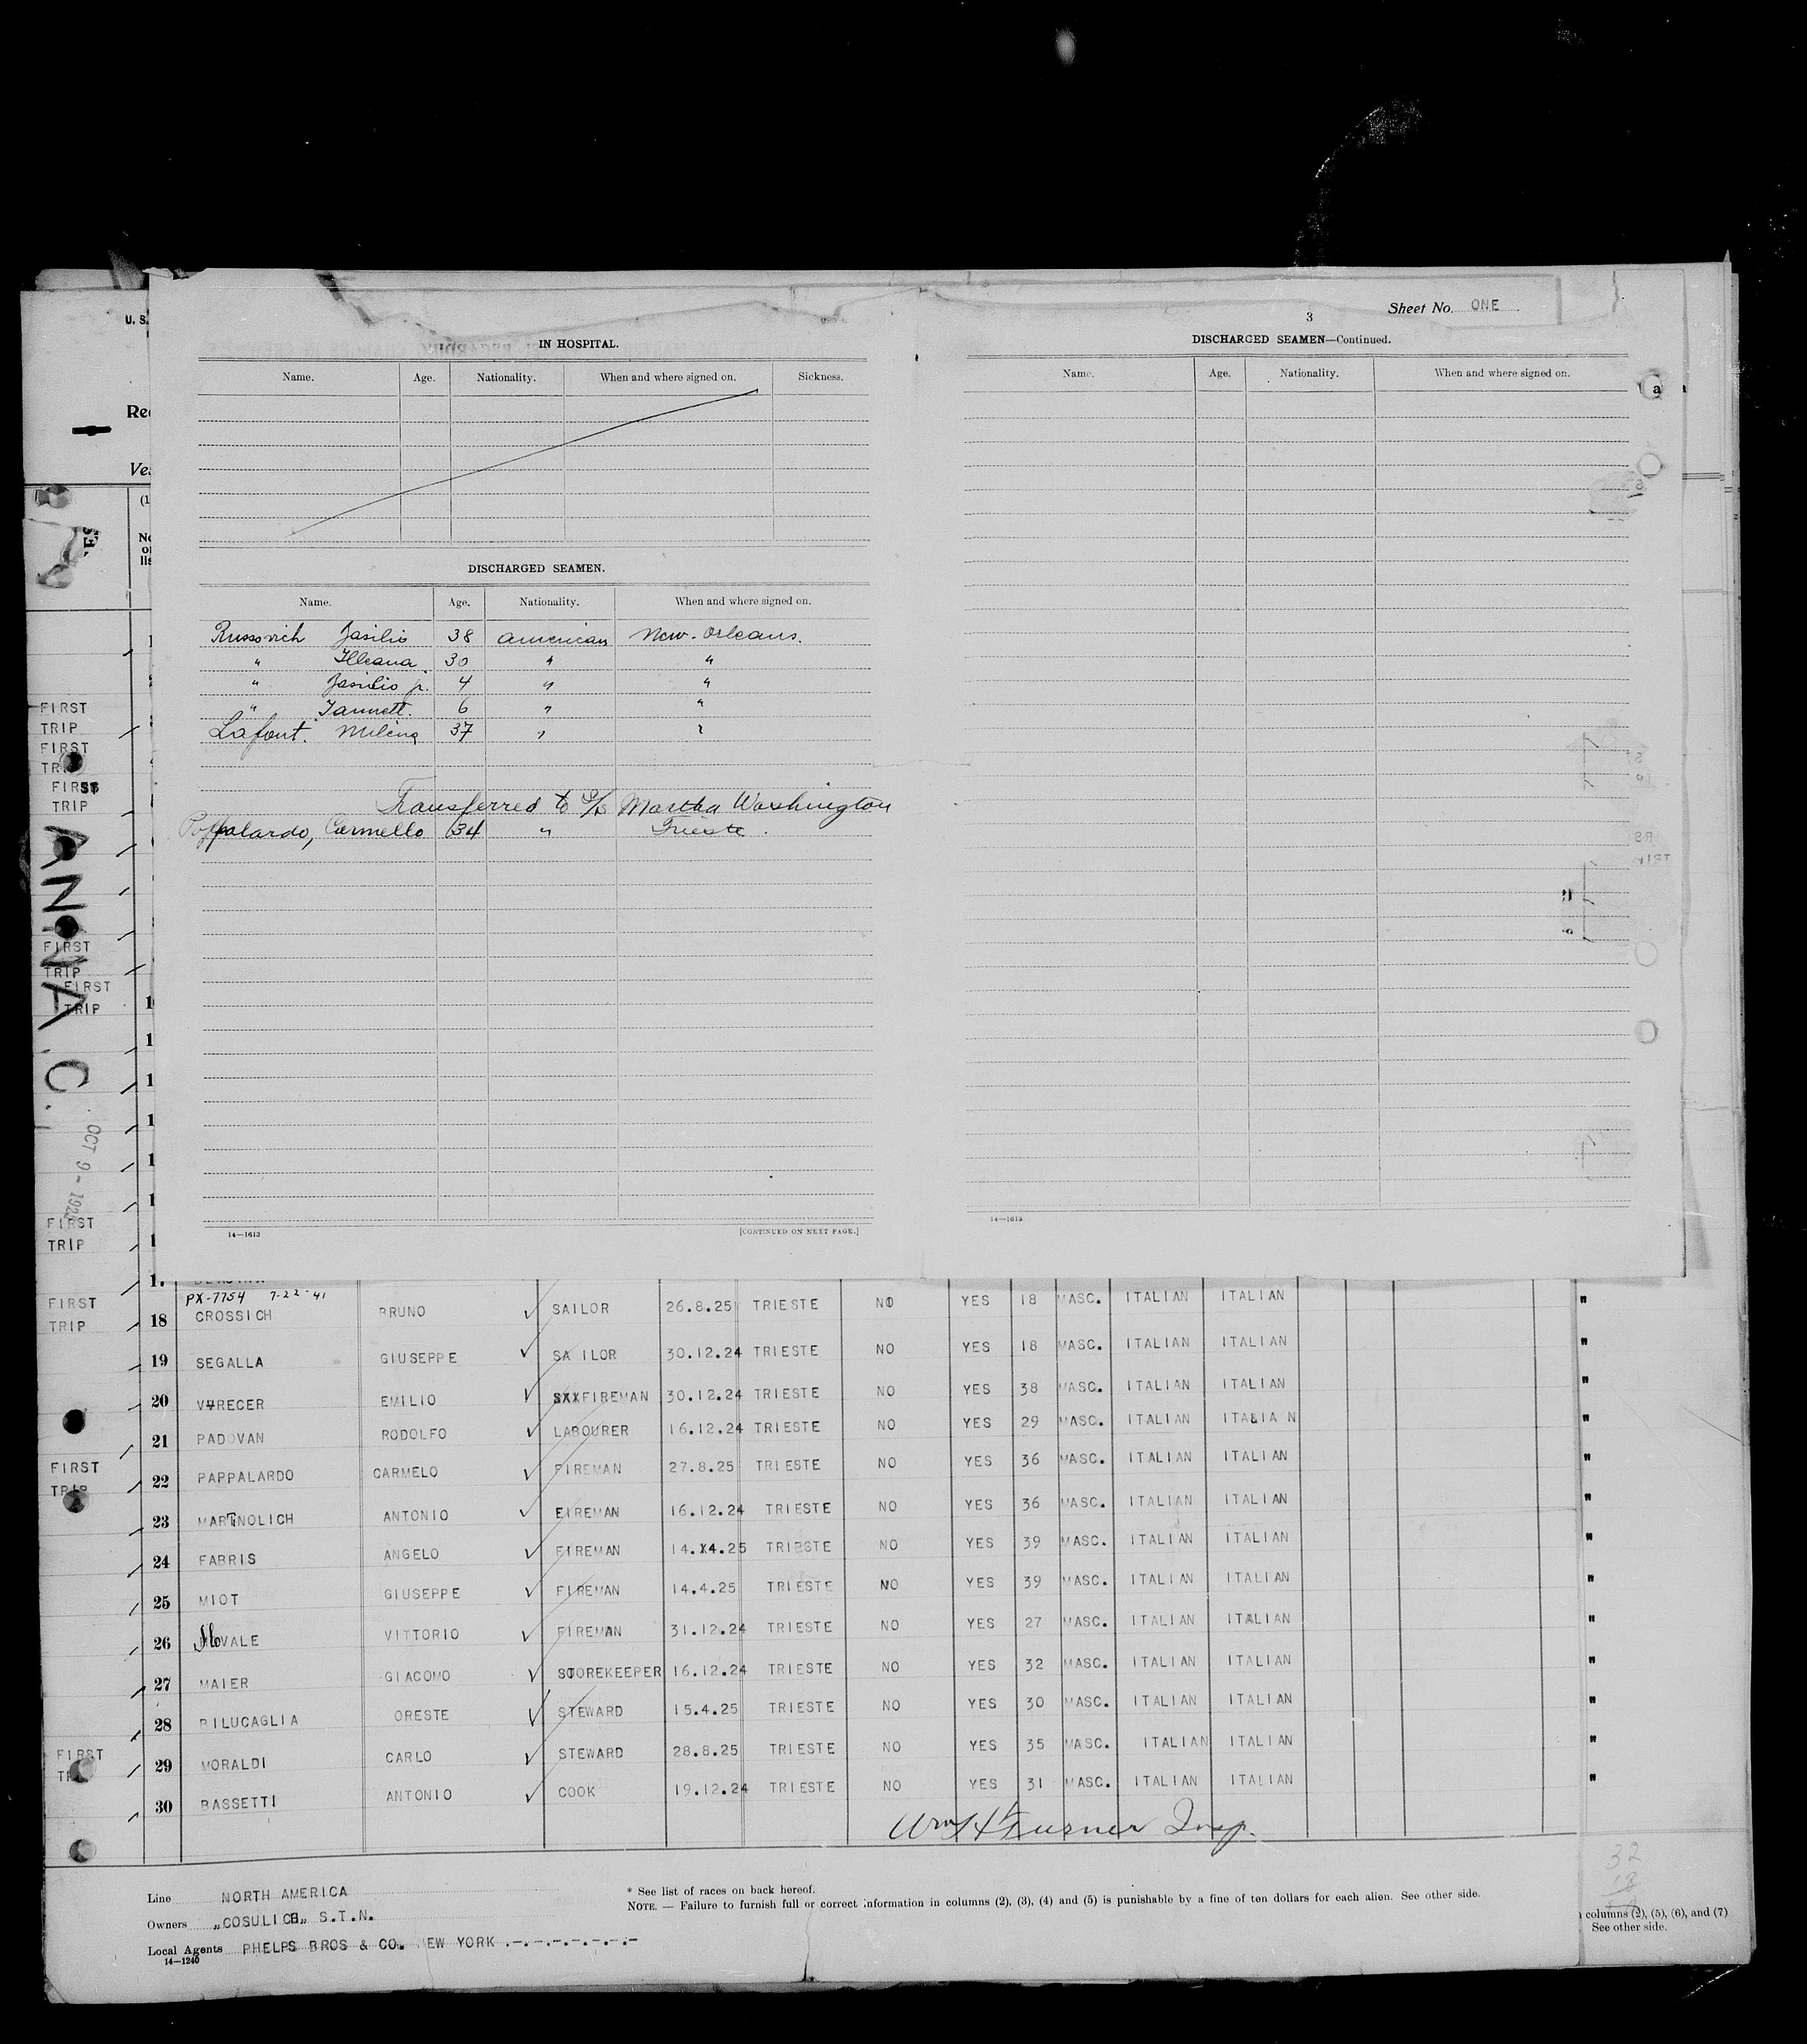 Sheet No. ONE
3
IN HOSPITAL.
Name. Age. Nationality. When and where signed on. Sickness.
DISCHARGED SEAMEN.
Name. Age. Nationality. When and where signed on.
Russovich Jasilio 38 american New-Orleans.
" Illeana 30 " "
" Jasilio jr. 4 " "
" 6 " "
Lafont. Milena 37 " "
Transferred to S/S Martha Washington
Poppalardo, Carmello 34 " Trieste.
14—1613 [CONTINUED ON NEXT PAGE.]
DISCHARGED SEAMEN—Continued.
Name. Age. Nationality. When and where signed on.
14—1613
U. S.
(1
FIRST
TRIP
FIRST
FIRST
TRIP
ANNA C.
FIRST
TRIP
FIRST
TRIP
OCT 9 - 192
FIRST
TRIP
PX-7754 7-22-41
FIRST TRIP 18 CROSSICH BRUNO SAILOR 26.8.25 TRIESTE NO YES 18 MASC. ITALIAN ITALIAN "
19 SEGALLA GIUSEPPE SA ILOR 30.12.24 TRIESTE NO YES 18 MASC. ITALIAN ITALIAN "
20 VURECER EMILIO FIREMAN 30.12.24 TRIESTE NO YES 38 MASC. ITALIAN ITALIAN "
21 PADOVAN RODOLFO LABOURER 16.12.24 TRIESTE NO YES 29 MASC. ITALIAN ITALIA N "
FIRST TRIP 22 PAPPALARDO CARMELO FIREMAN 27.8.25 TRIESTE NO YES 36 MASC. ITALIAN ITALIAN "
23 MARTNOLICH ANTONIO FIREMAN 16.12.24 TRIESTE NO YES 36 MASC. ITALIAN ITALIAN "
24 FABRIS ANGELO FIREMAN 14.X4.25 TRIESTE NO YES 39 MASC. ITALIAN ITALIAN "
25 MIOT GIUSEPPE FIREMAN 14.4.25 TRIESTE NO YES 39 MASC. ITALIAN ITALIAN "
26 VITTORIO FIREMAN 31.12.24 TRIESTE NO YES 27 MASC. ITALIAN ITALIAN "
27 MAIER GIACOMO STOREKEEPER 16.12.24 TRIESTE NO YES 32 MASC. ITALIAN ITALIAN "
28 PILUCAGLIA ORESTE STEWARD 15.4.25 TRIESTE NO YES 30 MASC. ITALIAN ITALIAN "
FIRST 29 MORALDI CARLO STEWARD 28.8.25 TRIESTE NO YES 35 MASC. ITALIAN ITALIAN "
30 BASSETTI ANTONIO COOK 19.12.24 TRIESTE NO YES 31 MASC. ITALIAN ITALIAN "
Wm H Turner Insp.
Line NORTH AMERICA
Owners „COSULICH„ S.T.N.
Local Agents PHELPS BROS & CO. EW YORK .-.-.-.-.-.-.-
14—1240
* See list of races on back hereof.
NOTE. — Failure to furnish full or correct information in columns (2), (3), (4) and (5) is punishable by a fine of ten dollars for each alien. See other side.
32
18
columns (2), (5), (6), and (7)
See other side.